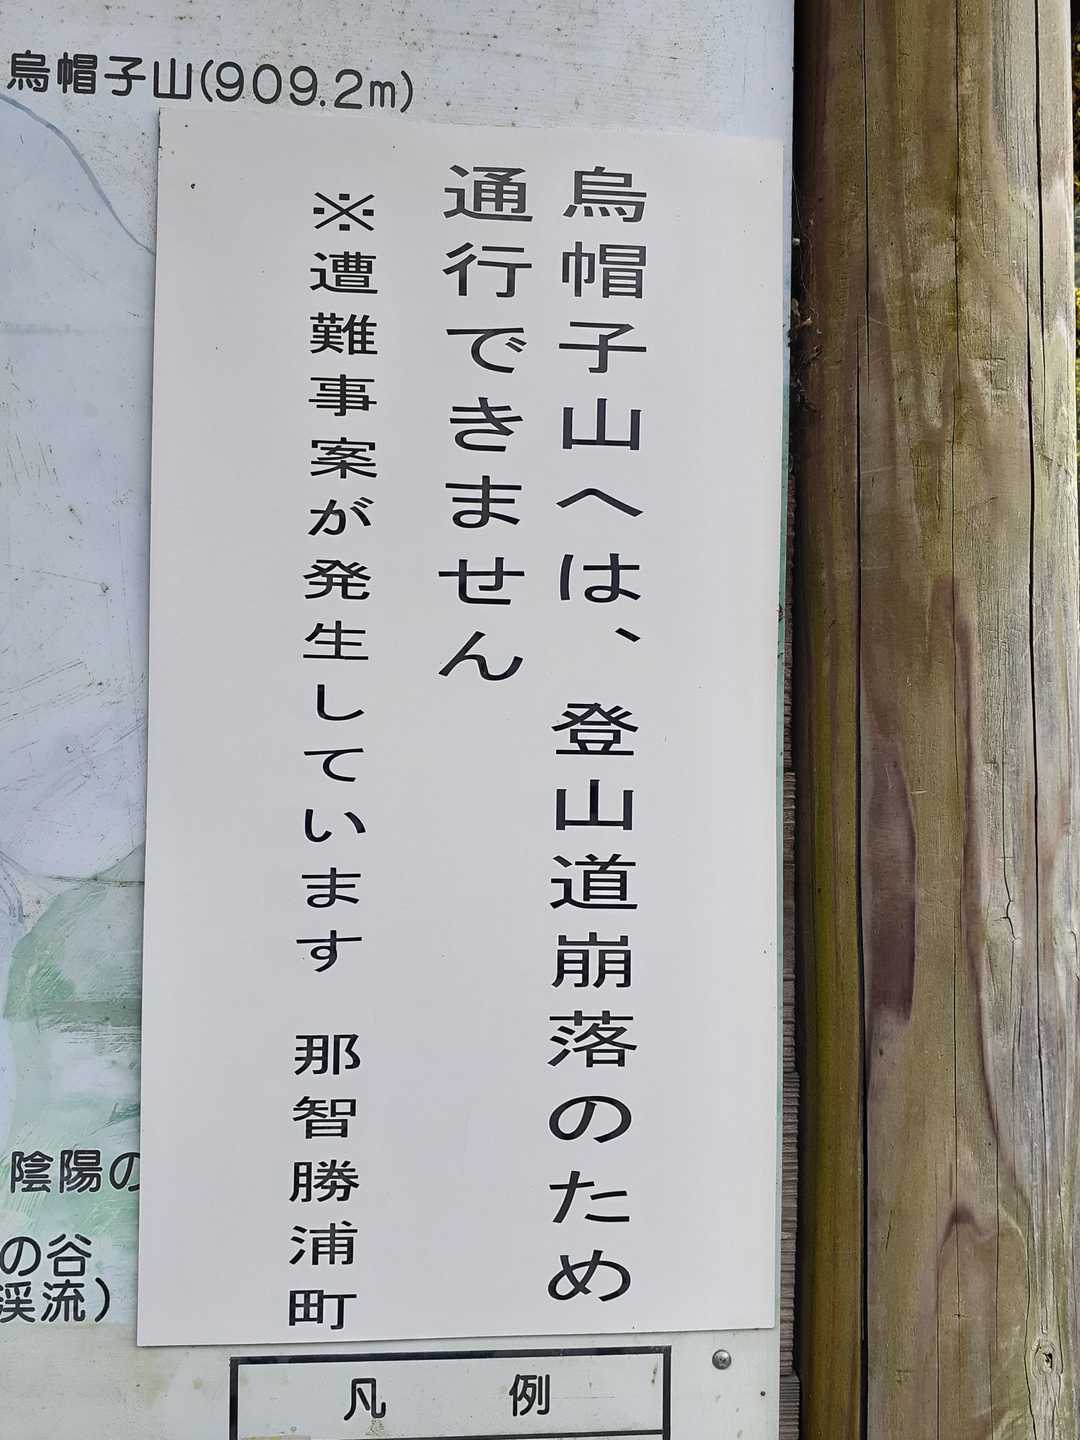 烏帽子山(909.2m)
烏帽子山へは、登山道崩落のため
通行できません
※遭難事案が発生しています 那智勝浦町
陰陽の
の谷
渓流）
凡 例